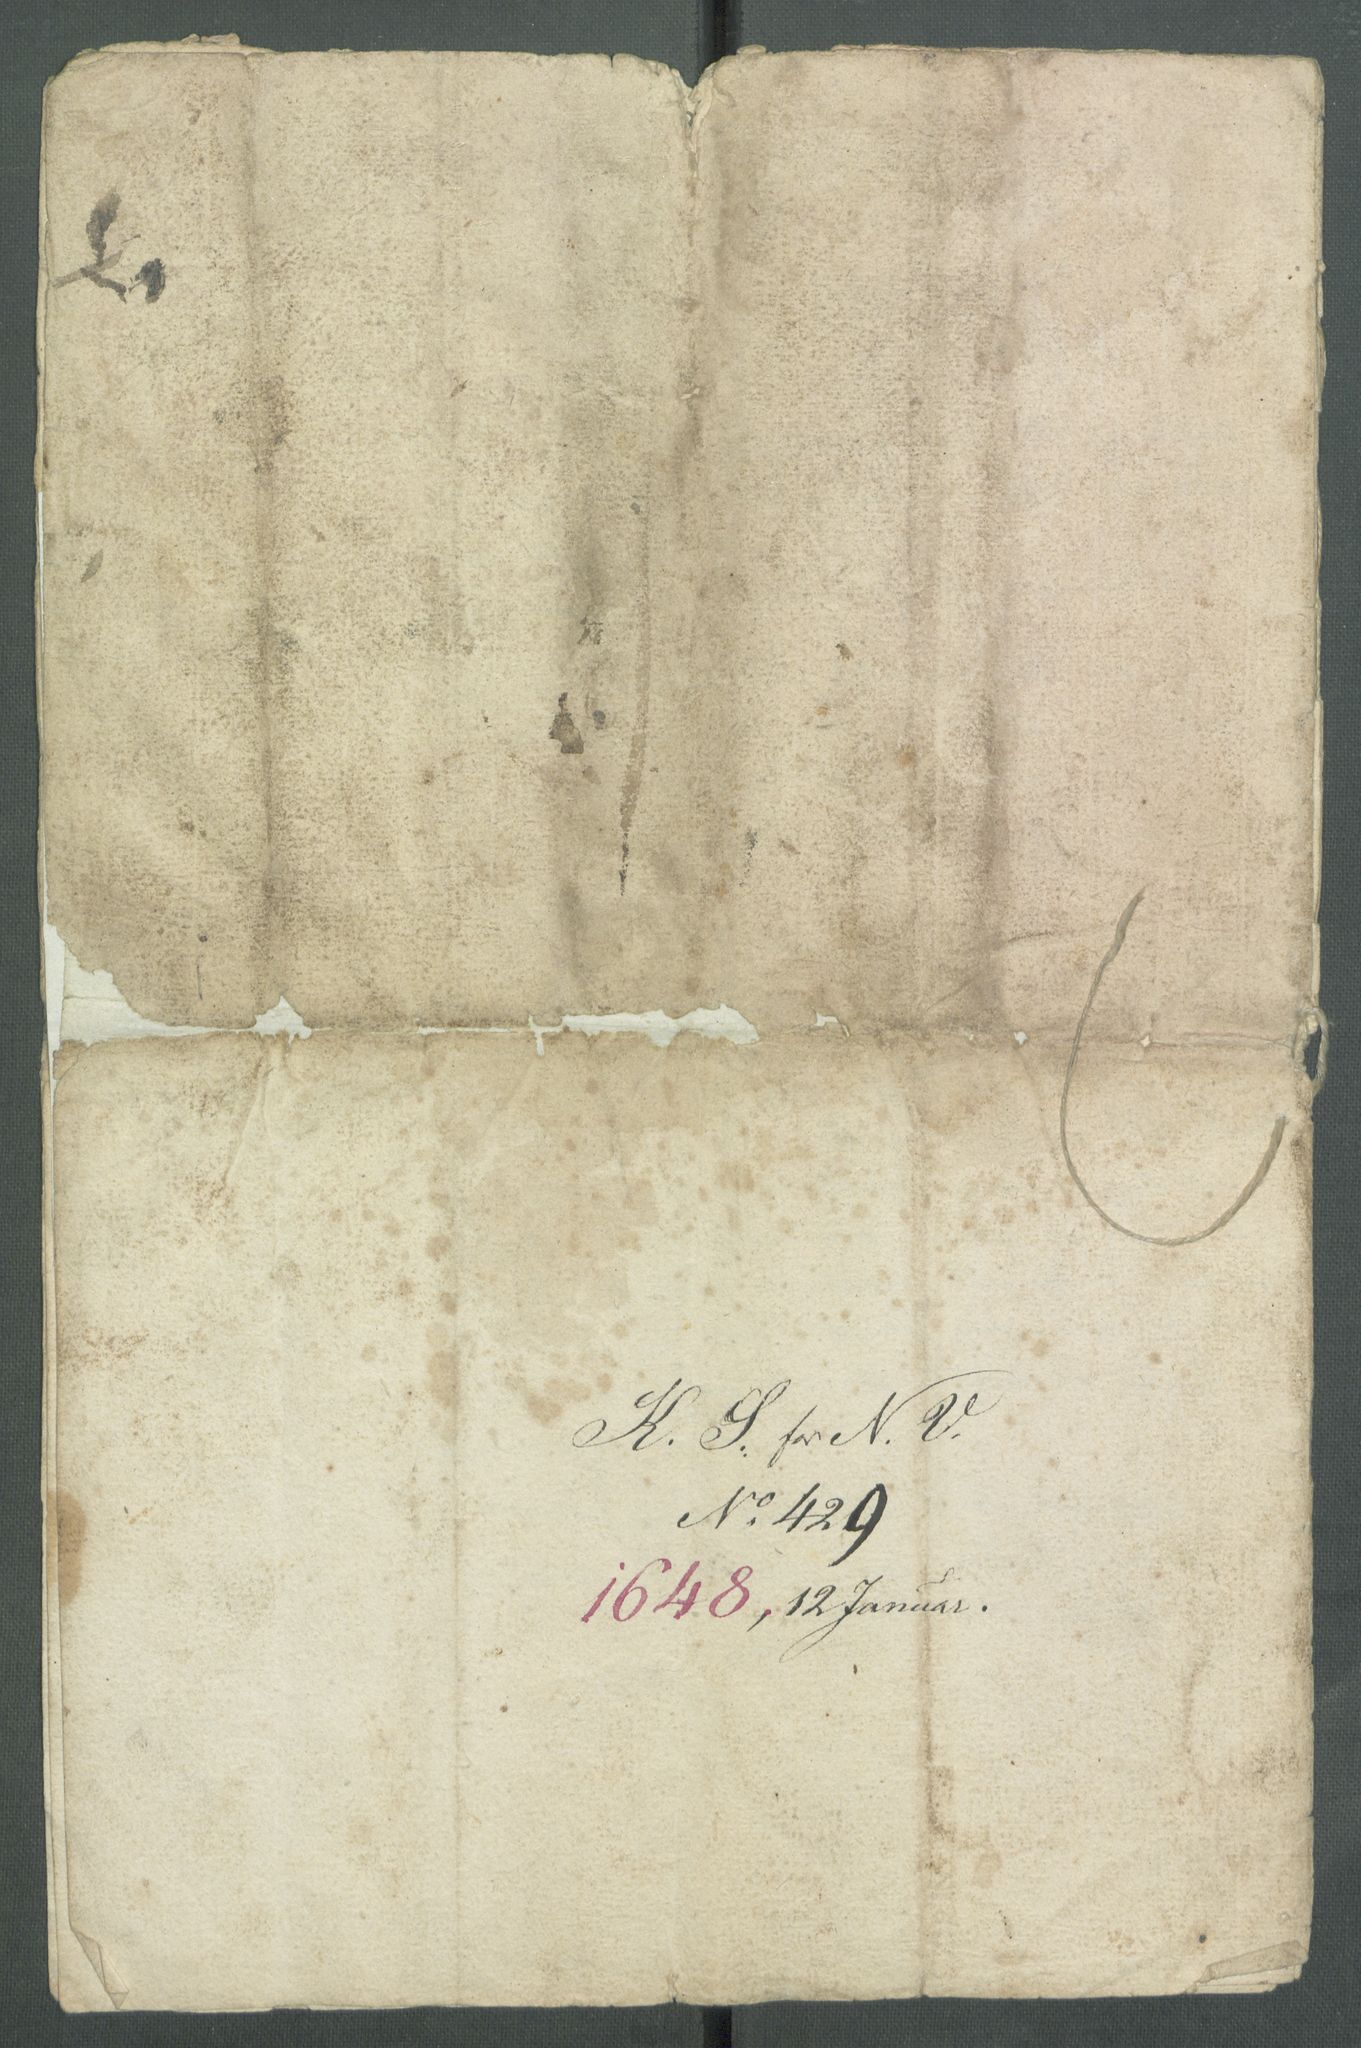 K. S. for N. V.
No. 429
1648, 12 Januar.